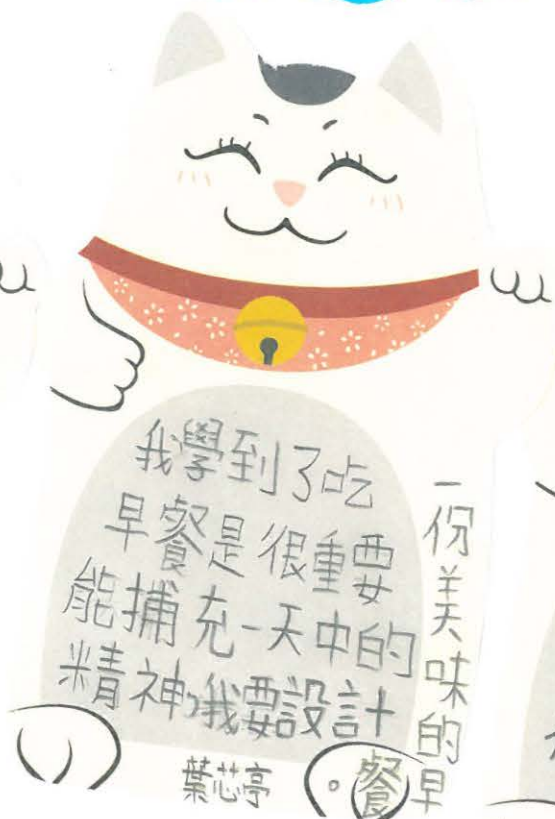 我學到了吃
早餐是很重要
能捕充一天中的
精神,我要設計
一份美味的早
餐。
葉芯亭